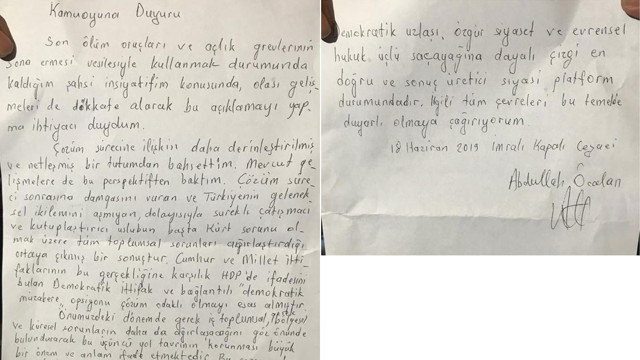 Kamuoyuna Duyuru
Son ölüm oruçları ve açlık grevlerinin
sona ermesi vesilesiyle kullanmak durumunda
kaldığım şahsi insiyatifim konusunda, olası geliş-
meleri de dikkate alarak bu açıklamayı yap-
ma ihtiyacı duydum.
Çözüm sürecine ilişkin daha derinleştirilmiş
ve netleşmiş bir tutumdan bahsettim. Mevcut ge-
lişmelere de bu perspektiften baktım. Çözüm süre-
ci sonrasına damgasını vuran ve Türkiyenin gelenek-
sel ikilemini aşmıyan, dolayısıyla sürekli çatışmacı
ve kutuplaştırıcı uslubun başta Kürt sorunu ol-
mak üzere tüm toplumsal sorunları ağırlaştırdığı
ortaya çıkmış bir sonuçtur. Cumhur ve Millet itti-
faklarının bu gerçekliğine karşılık HDP'de ifadesini
bulan Demokratik İttifak ve bağlantılı "demokratik
müzakere opsiyonu çözüm odaklı olmayı esas almıştır.
Önümüzdeki dönemde gerek iç toplumsal, bölgesel
ve küresel sorunların daha da ağırlaşacağını göz önünde
bulundurarak bu üçüncü yol tavrının korunması büyük
bir önem ve anlam ifade etmektedir. Bu
demokratik uzlaşı, özgür siyaset ve evrensel
hukuk üçlü saçayağına dayalı çizgi en
doğru ve sonuç üretici siyasi platform
durumundadır. İlgili tüm çevreleri bu temelde
duyarlı olmaya çağırıyorum.
18 Haziran 2019 İmralı Kapalı Cezaevi
Abdullah Öcalan